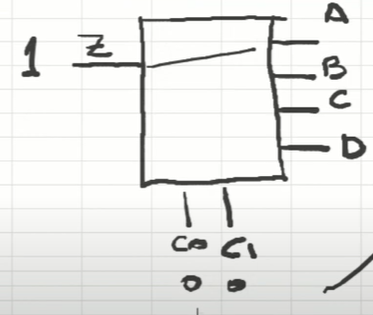 A
1 Z
B
C
D
C0 C1
0 0